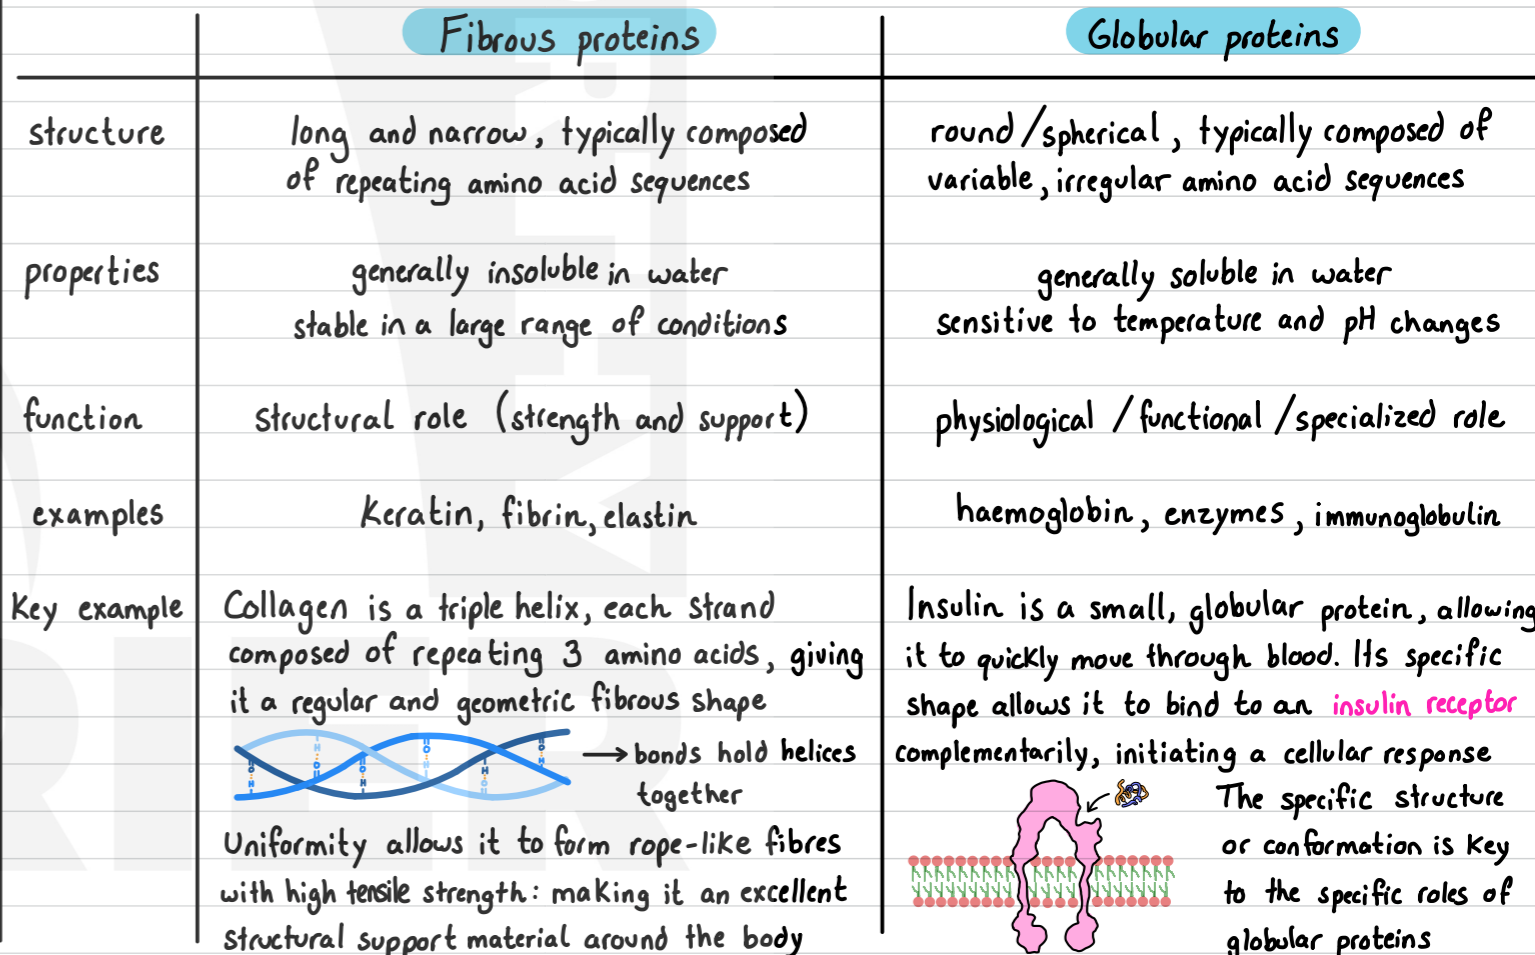 Fibrous proteins
Globular proteins
structure
long and narrow, typically composed
of repeating amino acid sequences
round/spherical, typically composed of
variable, irregular amino acid sequences
properties
generally insoluble in water
stable in a large range of conditions
generally soluble in water
sensitive to temperature and pH changes
function
structural role (strength and support)
physiological / functional / specialized role
examples
Keratin, fibrin, elastin
haemoglobin, enzymes, immunoglobulin
Key example
Collagen is a triple helix, each strand
composed of repeating 3 amino acids, giving
it a regular and geometric fibrous shape
bonds hold helices
together
Uniformity allows it to form rope-like fibres
with high tensile strength: making it an excellent
structural support material around the body
Insulin is a small, globular protein, allowing
it to quickly move through blood. Its specific
shape allows it to bind to an insulin receptor
complementarily, initiating a cellular response
The specific structure
or conformation is key
to the specific roles of
globular proteins